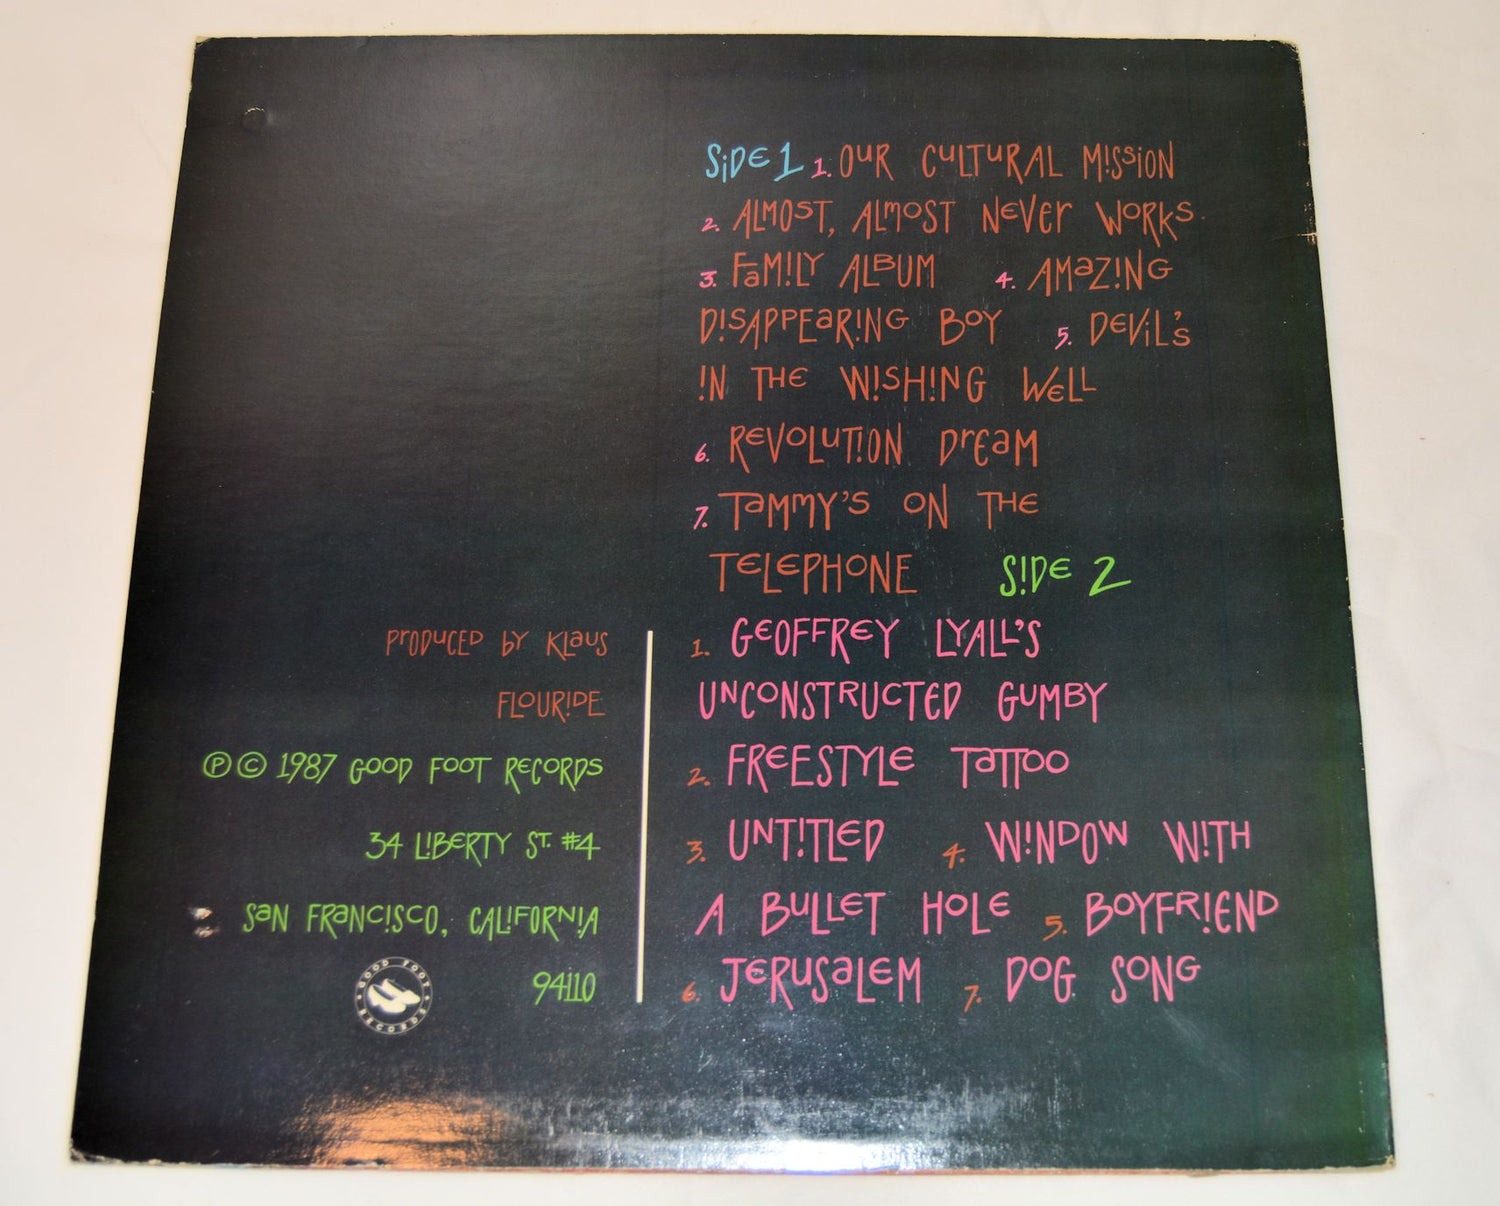 SiDE 1 1. OUR CULTURAL MISSION
2. ALMOST, ALMOST NEVER WORKS
3. FAMILY ALBUM 4. AMAZING
DISAPPEARING BOY 5. DEVIL'S
IN THE WISHING WELL
6. REVOLUTION DREAM
7. TAMMY'S ON THE
TELEPHONE SIDE 2
1. GEOFFREY LYALL'S
UNCONSTRUCTED GUMBY
2. FREESTYLE TATTOO
3. UNTITLED 4. WINDOW WITH
A BULLET HOLE 5. BOYFRIEND
6. JERUSALEM 7. DOG SONG
PRODUCED BY KLAUS
FLOURIDE
℗ © 1987 GOOD FOOT RECORDS
34 LIBERTY ST. #4
SAN FRANCISCO, CALIFORNIA
94110
GOOD FOOT RECORDS